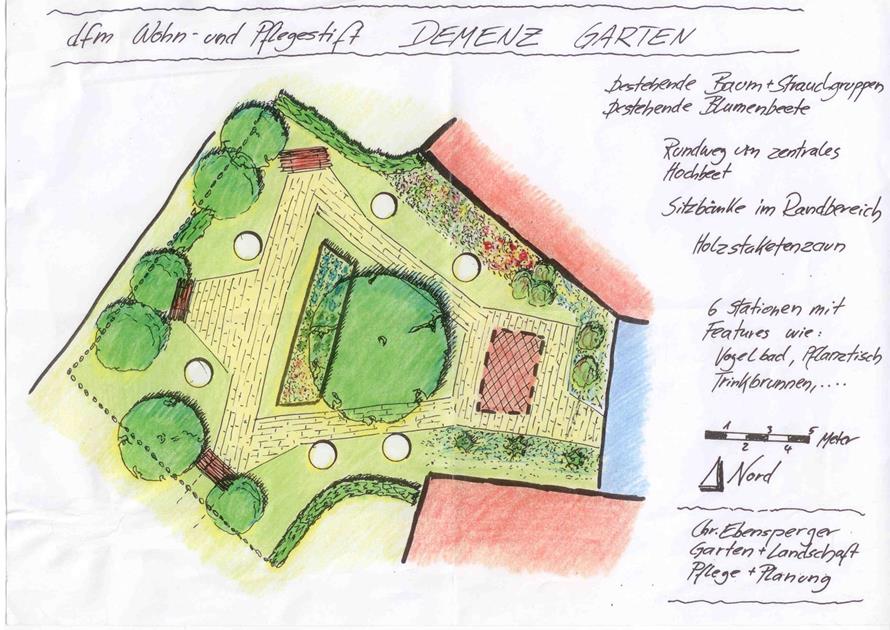 dfm Wohn- und Pflegestift DEMENZ GARTEN
bestehende Baum + Strauchgruppen
bestehende Blumenbeete
Rundweg um zentrales
Hochbeet
Sitzbänke im Randbereich
Holzstaketenzaun
6 Stationen mit
Features wie:
Vogelbad, Pflanztisch
Trinkbrunnen,....
1 3 5 Meter
2 4
Nord
Chr. Ebensperger
Garten + Landschaft
Pflege + Planung